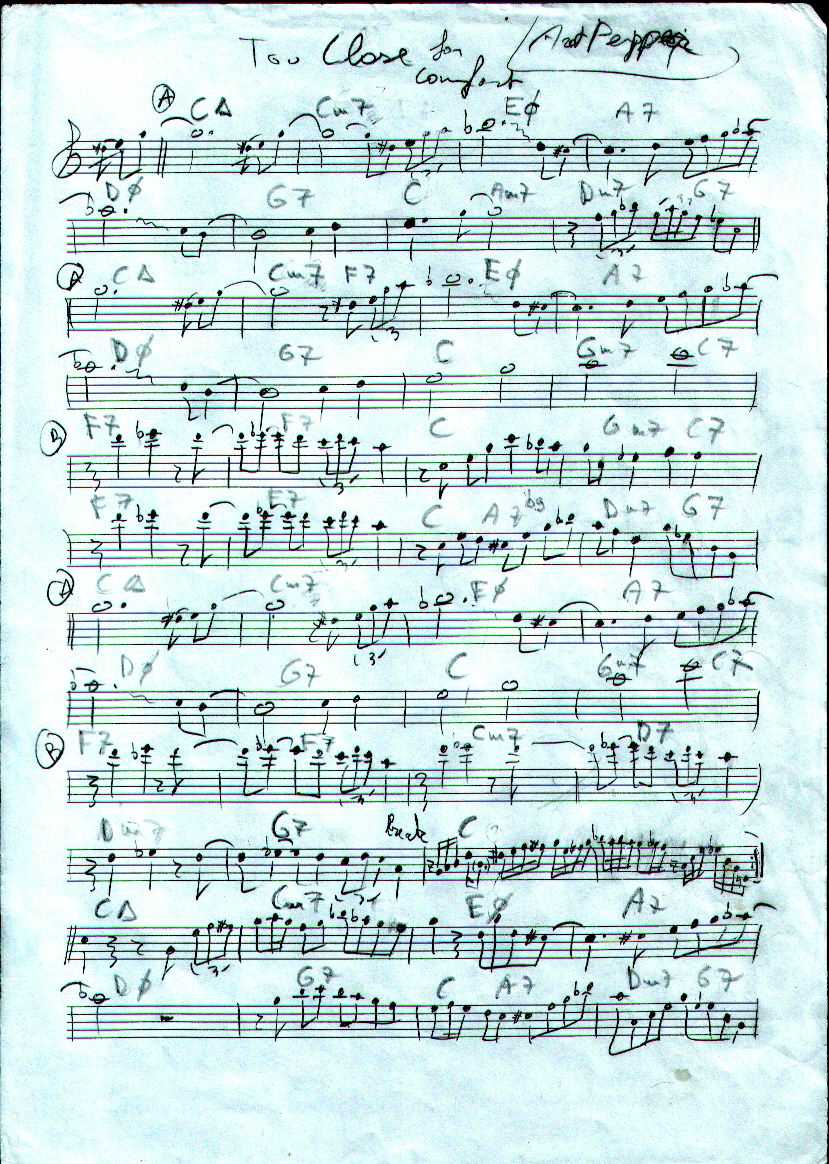 Too Close for comfort
Art Pepper
A CΔ Cm7 Eø A7
Dø G7 C Am7 Dm7 G7
A CΔ Cm7 F7 Eø A7
Dø G7 C Gm7 C7
B F7 F7 C Gm7 C7
F7 F7 C A7 b9 Dm7 G7
A CΔ Cm7 Eø A7
Dø G7 C Gm7 C7
B F7 F7 Cm7 D7
Dm7 G7 Break C
CΔ Cm7 Eø A7
Dø G7 C A7 Dm7 G7